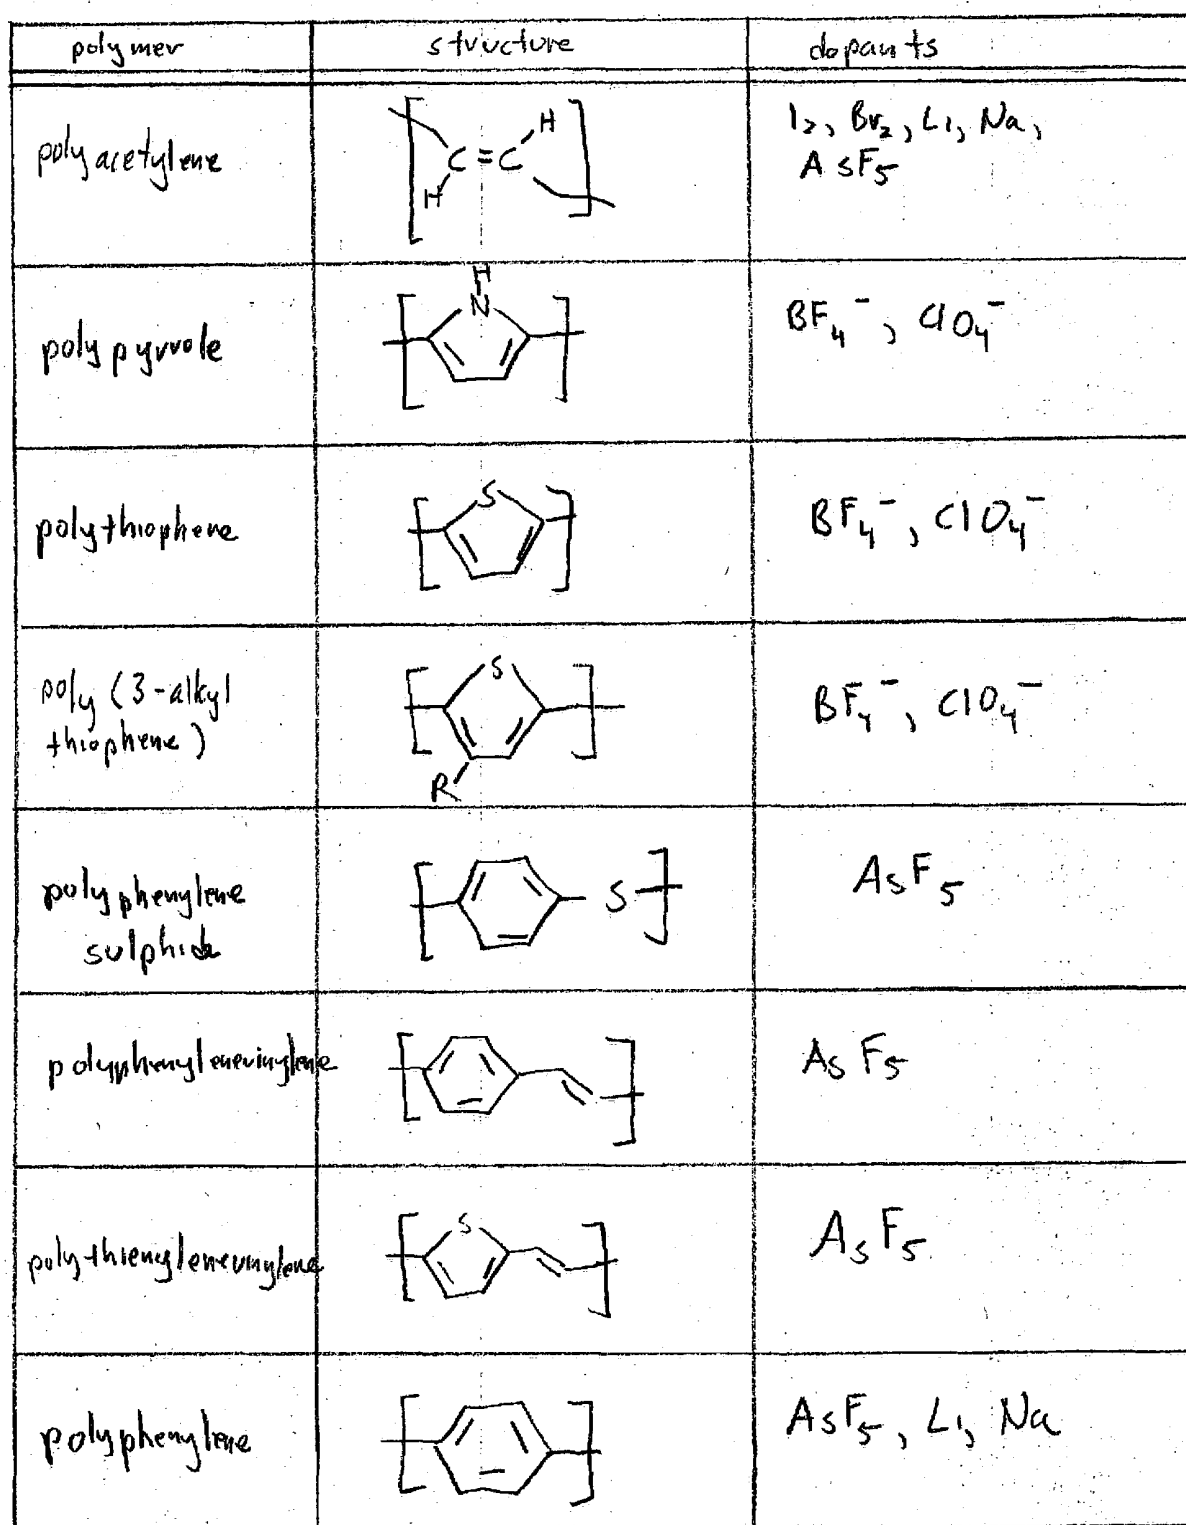 polymer structure dopants
polyacetylene
H
C=C
H
I₂, Br₂, Li, Na,
AsF₅
polypyrrole
H
N
BF₄⁻, ClO₄⁻
polythiophene
S
BF₄⁻, ClO₄⁻
poly (3-alkyl
thiophene)
S
R
BF₄⁻, ClO₄⁻
polyphenylene
sulphide
S
AsF₅
polyphenylenevinylene
AsF₅
polythienylenevinylene
S
AsF₅
polyphenylene
AsF₅, Li, Na